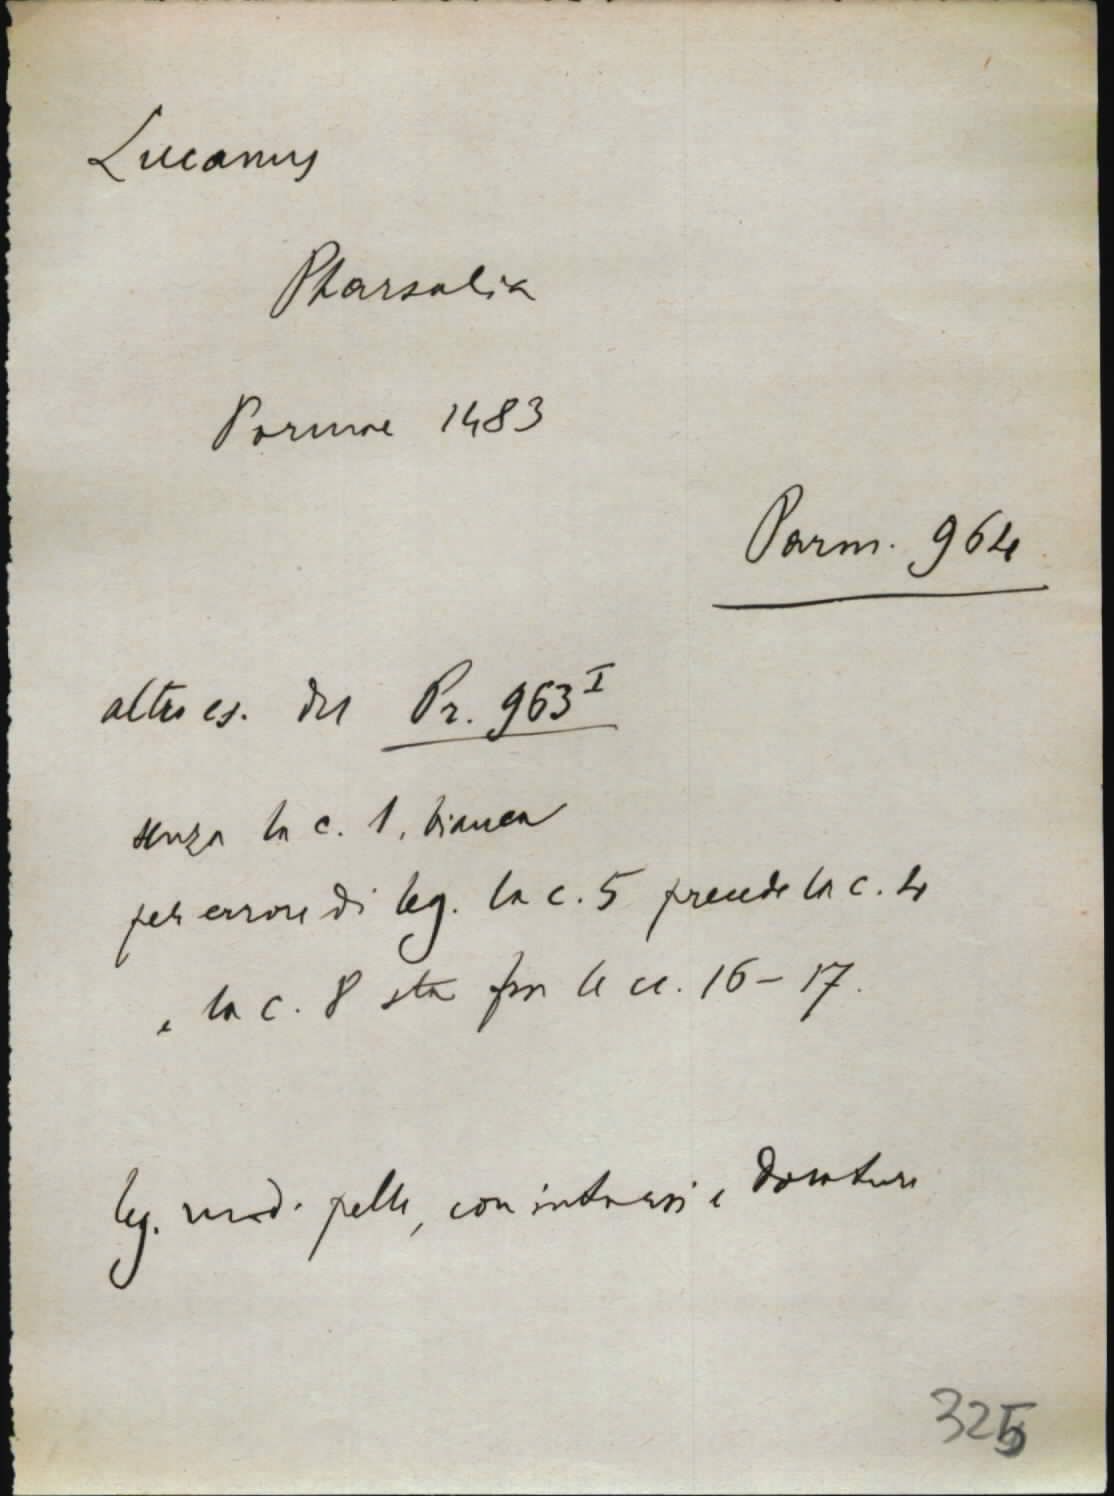 Lucanus
Pharsalia
Parmae 1483
Parm. 964
altro es. del Pr. 963 I
senza la c. 1, bianca
per errore di leg. la c. 5 precede la c. 4
e la c. 8 sta fra le cc. 16-17.
leg. mod. pelle, con intarsi e dorature
325